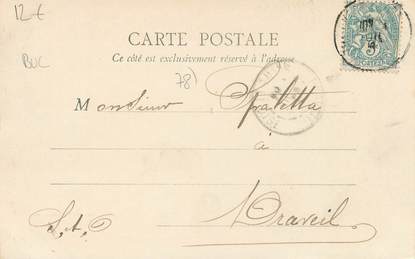 12€
CARTE POSTALE
Ce côté est exclusivement réservé à l'adresse
BUC
78)
Monsieur Spaletta
à
S, et, O
Draveil